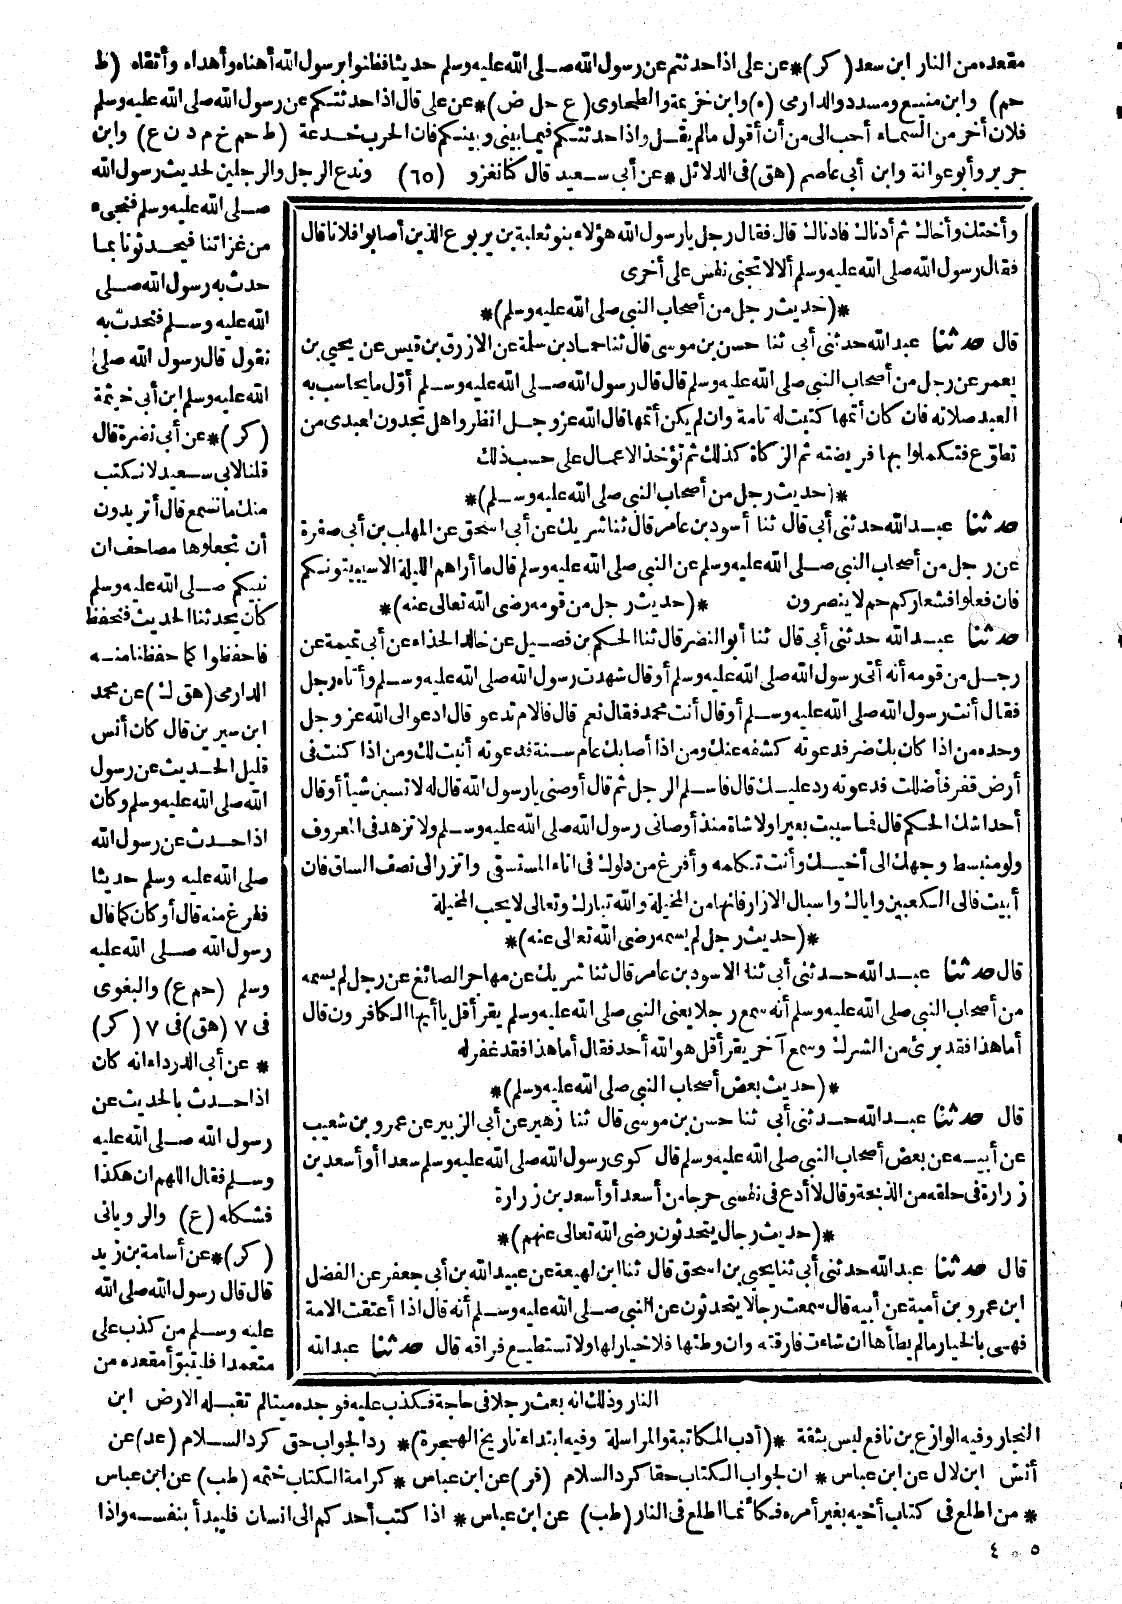 مقعده من النار ابن سعد (كر)* عن على اذا حدثتم عن رسول الله صلى الله عليه وسلم حديثا فظانوا برسول الله أهناه وأهداه وأتقاه (ط
حم) وابن منيع ومسدد والدارمى (ه) وابن خزيمة والطحاوى (ع حل ض)* عن على قال اذا حدثتكم عن رسول الله صلى الله عليه وسلم
فلان أخر من السماء أحب الى من أن أقول مالم يقل واذا حدثتكم فيما بينى وبينكم فان الحرب خدعة (ط حم خ م د ن ع) وابن
جرير وأبو عوانة وابن أبى عاصم (هق) فى الدلائل * عن أبى سعيد قال كنا نغزو (٦٥) وندع الرجل والرجلين لحديث رسول الله
صلى الله عليه وسلم فنجىء
من غزاتنا فيحدثونا بما
حدث به رسول الله صلى
الله عليه وسلم فنحدث به
نقول قال رسول الله صلى
الله عليه وسلم ابن أبى خيثمة
(كر)* عن أبى نضرة قال
قلنا لابى سعيد لانكتب
منك ما نسمع قال أتريدون
أن تجعلوها مصاحف ان
نبيكم صلى الله عليه وسلم
كان يحدثنا الحديث فنحفظ
فاحفظوا كما حفظنا منه
الدارمى (هق ك) عن محمد
ابن سيرين قال كان أنس
قليل الحديث عن رسول
الله صلى الله عليه وسلم وكان
اذا حدث عن رسول الله
صلى الله عليه وسلم حديثا
ففرغ منه قال أو كان كما قال
رسول الله صلى الله عليه
وسلم (حم ع) والبغوى
فى ٧ (هق) فى ٧ (كر)
* عن أبى الدرداء انه كان
اذا حدث بالحديث عن
رسول الله صلى الله عليه
وسلم فقال اللهم ان هكذا
فشكله (ع) والرويانى
(كر)* عن أسامة بن زيد
قال قال رسول الله صلى الله
عليه وسلم من كذب على
متعمدا فليتبوّأ مقعده من
وأختك وأخاك ثم أدناك فادناك قال فقال رجل يارسول الله هؤلاء بنو ثعلبة بن يربوع الذين أصابوا فلانا قال
فقال رسول الله صلى الله عليه وسلم ألا لا تجنى نفس على أخرى
*(حديث رجل من أصحاب النبى صلى الله عليه وسلم)*
قال حدثنا عبد الله حدثنى أبى ثنا حسن بن موسى قال ثنا حماد بن سلمة عن الازرق بن قيس عن يحيى بن
يعمر عن رجل من أصحاب النبى صلى الله عليه وسلم قال قال رسول الله صلى الله عليه وسلم أوّل ما يحاسب به
العبد صلاته فان كان أتمها كتبت له تامة وان لم يكن أتمها قال الله عز وجل انظروا هل تجدون لعبدى من
تطوّع فتكملوا بها فريضته ثم الزكاة كذلك ثم تؤخذ الاعمال على حسب ذلك
*(حديث رجل من أصحاب النبى صلى الله عليه وسلم)*
حدثنا عبد الله حدثنى أبى قال ثنا أسود بن عامر قال ثنا شريك عن أبى اسحق عن المهلب بن أبى صفرة
عن رجل من أصحاب النبى صلى الله عليه وسلم عن النبى صلى الله عليه وسلم قال ما أراهم الليلة الا سيبيتونكم
فان فعلوا فشعاركم حم لا ينصرون *(حديث رجل من قومه رضى الله تعالى عنه)*
حدثنا عبد الله حدثنى أبى قال ثنا أبو النضر قال ثنا الحكم بن فصيل عن خالد الحذاء عن أبى تميمة عن
رجل من قومه أنه أتى رسول الله صلى الله عليه وسلم أو قال شهدت رسول الله صلى الله عليه وسلم وأتاه رجل
فقال أنت رسول الله صلى الله عليه وسلم أو قال أنت محمد فقال نعم قال فالام تدعو قال ادعو الى الله عز وجل
وحده من اذا كان بك ضر فدعوته كشفه عنك ومن اذا أصابك عام سنة فدعوته أنبت لك ومن اذا كنت فى
أرض قفر فأضللت فدعوته رد عليك قال فاسلم الرجل ثم قال أوصنى يارسول الله قال له لا تسبن شيأ أو قال
أحدا شك الحكم قال فما سببت بعيرا ولا شاة منذ أوصانى رسول الله صلى الله عليه وسلم ولا تزهد فى المعروف
ولو منبسط وجهك الى أخيك وأنت تكلمه وأفرغ من دلوك فى اناء المستسقى واتزر الى نصف الساق فان
أبيت فالى الكعبين واياك واسبال الازار فانها من المخيلة والله تبارك وتعالى لا يحب المخيلة
*(حديث رجل لم يسمه رضى الله تعالى عنه)*
قال حدثنا عبد الله حدثنى أبى ثنا الاسود بن عامر قال ثنا شريك عن مهاجر الصائغ عن رجل لم يسمه
من أصحاب النبى صلى الله عليه وسلم أنه سمع رجلا يعنى النبى صلى الله عليه وسلم يقرأ قل يا أيها الكافرون قال
أما هذا فقد برئ من الشرك وسمع آخر يقرأ قل هو الله أحد فقال أما هذا فقد غفر له
*(حديث بعض أصحاب النبى صلى الله عليه وسلم)*
قال حدثنا عبد الله حدثنى أبى ثنا حسن بن موسى قال ثنا زهير عن أبى الزبير عن عمرو بن شعيب
عن أبيه عن بعض أصحاب النبى صلى الله عليه وسلم قال كوى رسول الله صلى الله عليه وسلم سعدا أو أسعد بن
زرارة فى حلقه من الذبحة وقال لا أدع فى نفسى حرجا من أسعد أو أسعد بن زرارة
*(حديث رجال يتحدثون رضى الله تعالى عنهم)*
قال حدثنا عبد الله حدثنى أبى ثنا يحيى بن اسحق قال ثنا ابن لهيعة عن عبيد الله بن أبى جعفر عن الفضل
ابن عمرو بن أمية عن أبيه قال سمعت رجالا يتحدثون عن النبى صلى الله عليه وسلم أنه قال اذا أعتقت الامة
فهى بالخيار مالم يطأها ان شاءت فارقته وان وطئها فلا خيار لها ولا تستطيع فراقه قال حدثنا عبد الله
النار وذلك انه بعث رجلا فى حاجة فكذب عليه فوجده ميتا لم تقبله الارض ابن
النجار وفيه الوازع بن نافع ليس بثقة *(أدب المكاتبة والمراسلة وفيه ابتداء تاريخ الهجرة)* رد الجواب حق كرد السلام (عد) عن
أنس ابن لال عن ابن عباس * ان لجواب الكتاب حقا كرد السلام (فر) عن ابن عباس * كرامة الكتاب ختمه (طب) عن ابن عباس
* من اطلع فى كتاب أخيه بغير أمره فكأنما اطلع فى النار (طب) عن ابن عباس * اذا كتب أحدكم الى انسان فليبدأ بنفسه واذا
٥ * ٤